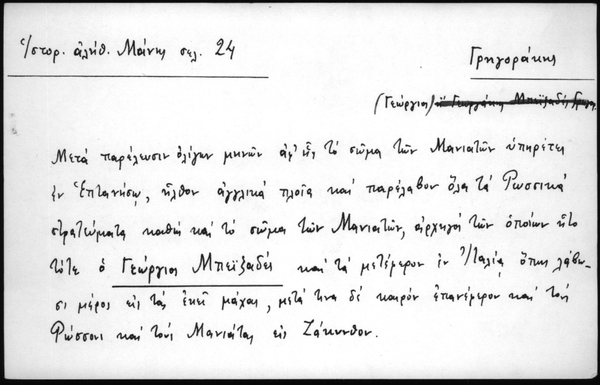 Ἱστορ. ἀλήθ. Μάνης σελ. 24
Γρηγοράκης
(Γεώργιος) ἢ Γεωργάκης Μπεϊζαδές
Μετά παρέλευσιν ὀλίγων μηνῶν ἀφ' ἧς τό σῶμα τῶν Μανιατῶν ὑπηρέτει
ἐν Ἑπτανήσῳ, ἦλθον ἀγγλικά πλοῖα καί παρέλαβον ὅλα τά Ρωσσικά
στρατεύματα καθώς καί τό σῶμα τῶν Μανιατῶν, ἀρχηγός τῶν ὁποίων ἦτο
τότε ὁ Γεώργιος Μπεϊζαδές καί τά μετέφερον ἐν Ἰταλίᾳ ὅπως λάβω-
σι μέρος εἰς τάς ἐκεῖ μάχας, μετά τινα δέ καιρόν ἐπανέφερον καί τούς
Ρώσσους καί τούς Μανιάτας εἰς Ζάκυνθον.